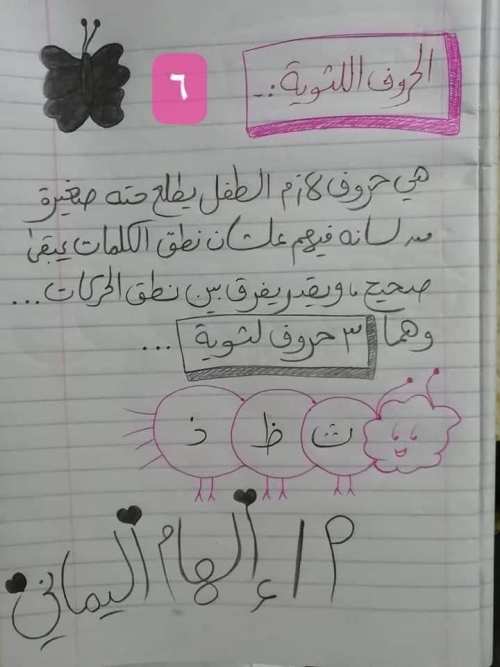 الحروف اللثوية :ـ
٦
هي حروف لازم الطفل يطلع حته صغيرة
من لسانه فيهم علشان نطق الكلمات يبقى
صحيح ، ويقدر يفرق بين نطق الحركات ...
وهما ٣ حروف لثوية ...
ث ظ ذ
م / إلهام اليماني